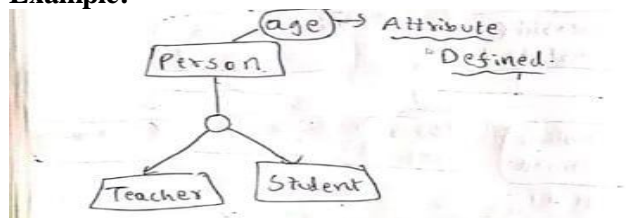 Example:
age → Attribute
Defined.
Person
Teacher
Student